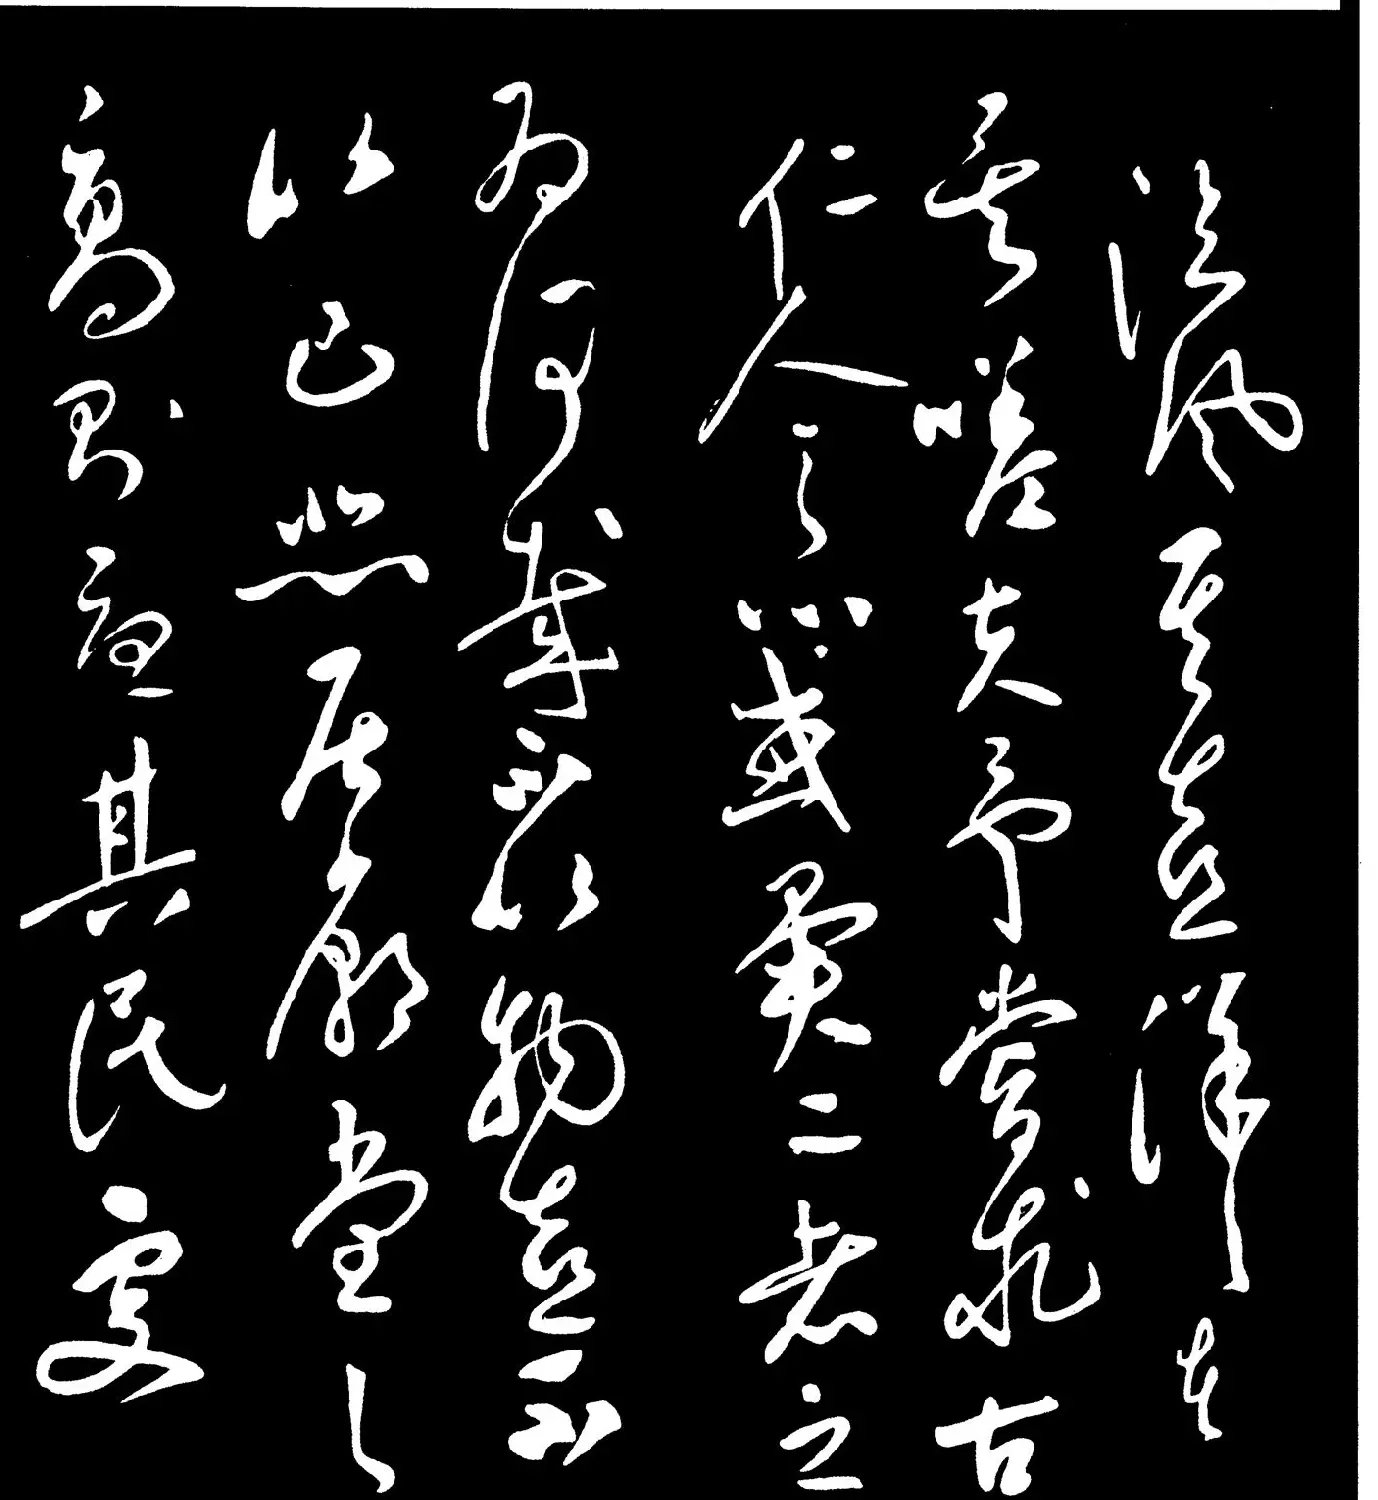 臨風其喜洋洋者
矣嗟夫予嘗求古
仁人之心或異二者之
為何哉不以物喜不
以己悲居廟堂之
高則憂其民處